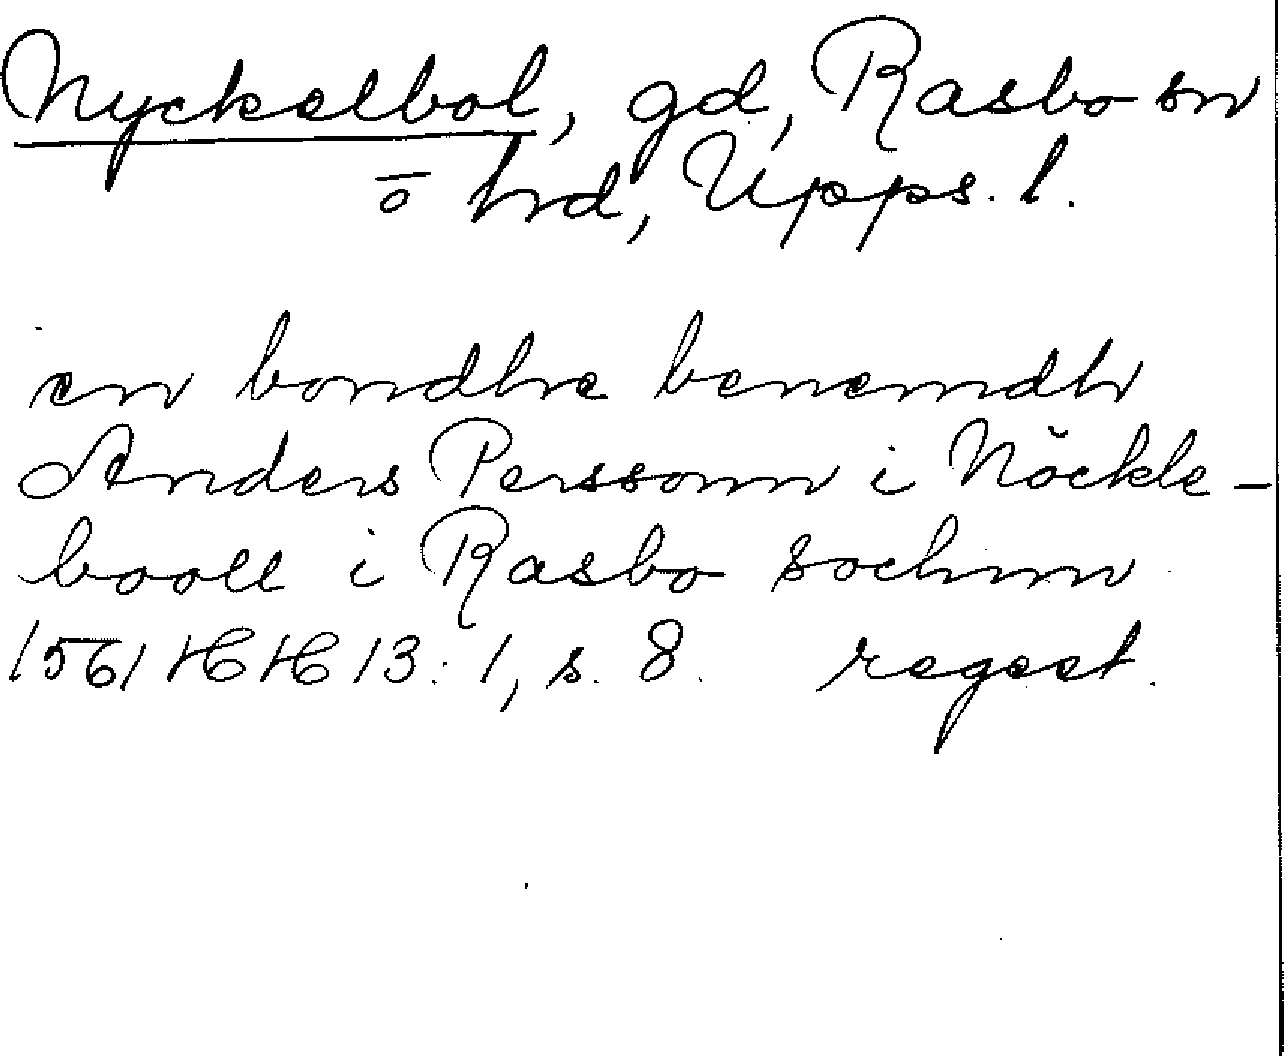 Nyckelbol, gd, Rasbo sn
o hd, Upps. l.
en bondhe benemdh
Anders Perssonn i Nöckle-
booll i Rasbo sochnn
1561 HH 13:1, s. 8. regest.